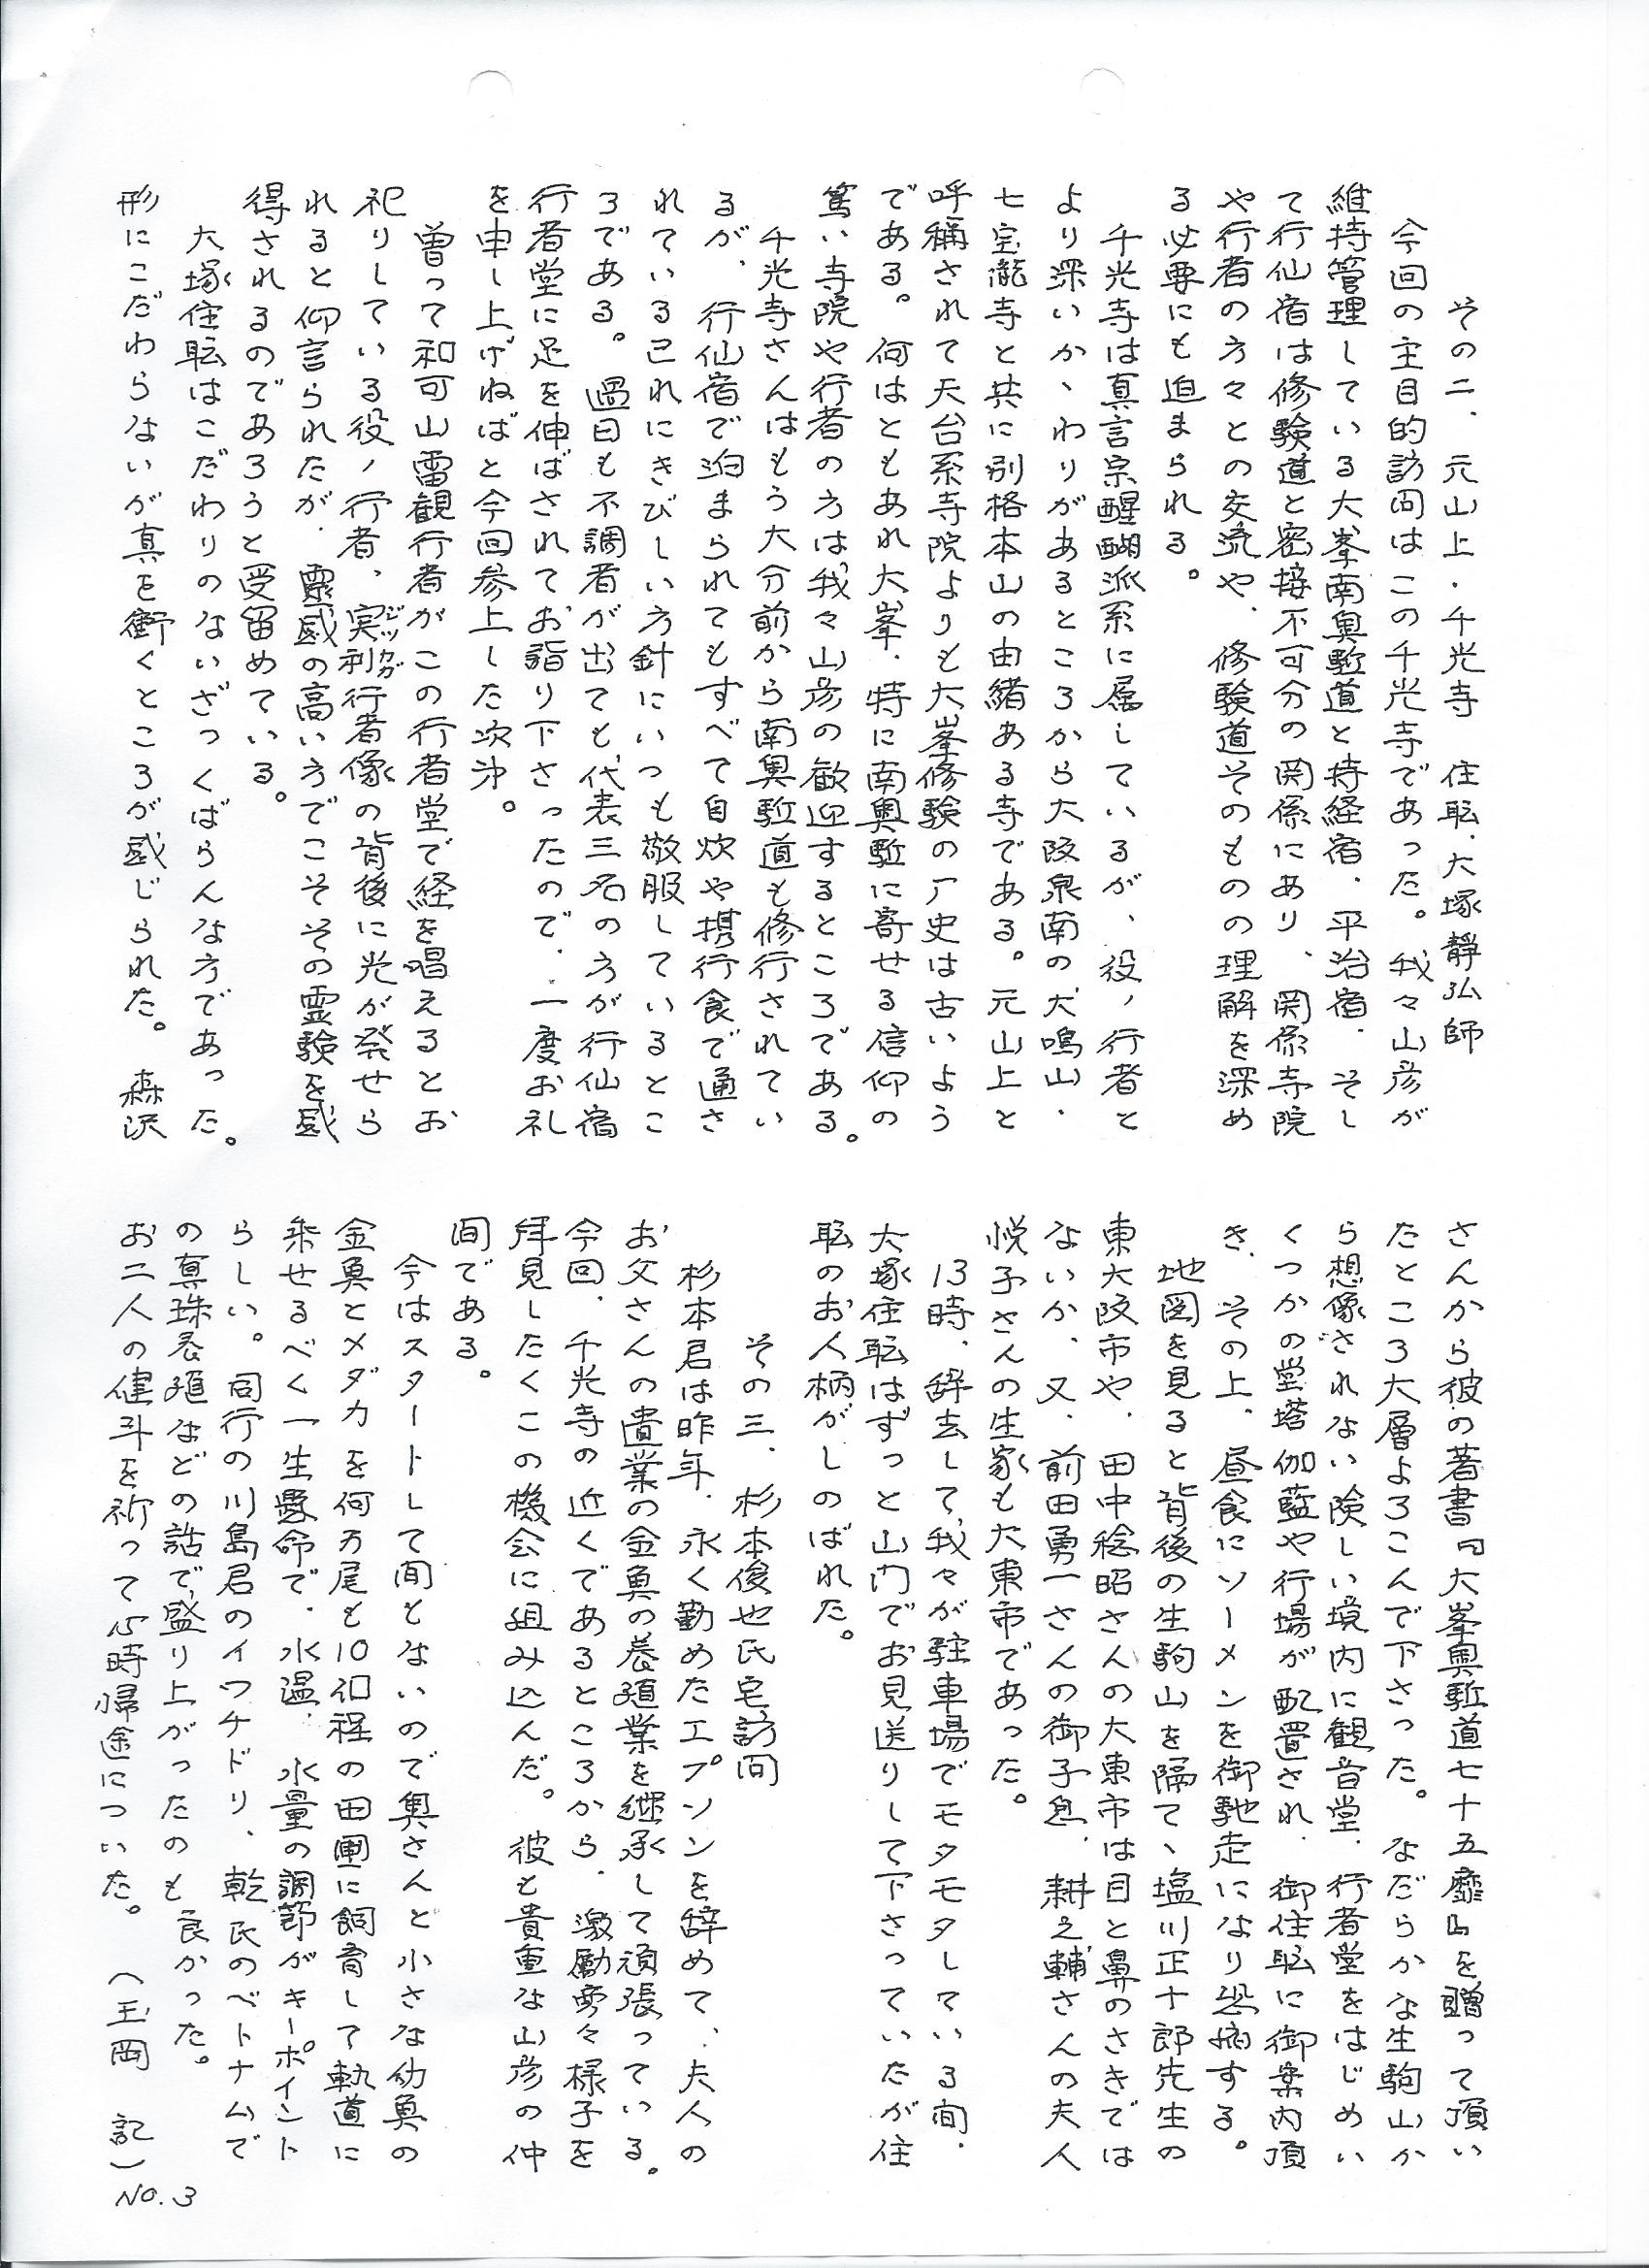 その二、元山上・千光寺　住職・大塚静弘師
今回の主目的訪問はこの千光寺であった。我々山彦が
維持管理している大峯南奥駈道と持経宿．平治宿．そし
て行仙宿は修験道と密接不可分の関係にあり、関係寺院
や行者の方々との交流や、修験道そのものの理解を深め
る必要にも迫まられる。
千光寺は真言宗醍醐派系に属しているが、役ノ行者と
より深いかゝわりがあるところから大阪泉南の犬鳴山．
七宝瀧寺と共に別格本山の由緒ある寺である。元山上と
呼称されて天台系寺院よりも大峯修験の厂史は古いよう
である。何はともあれ大峯．特に南奥駈に寄せる信仰の
篤い寺院や行者の方は我々山彦の歓迎するところである。
千光寺さんはもう大分前から南奥駈道も修行されてい
るが、行仙宿で泊まられてもすべて自炊や携行食で通さ
れている己れにきびしい方針にいつも敬服しているとこ
ろである。過日も不調者が出ても代表三名の方が行仙宿
行者堂に足を伸ばされてお詣り下さったので．一度お礼
を申し上げねばと今回参上した次㐧。
曽って和可山雷観行者がこの行者堂で経を唱えるとお
祀りしている役ノ行者、実利行者像の背後に光が発せら
れると仰言られたが．霊感の高い方でこそその霊験を感
得されるのであろうと受留めている。
大塚住職はこだわりのないざっくばらんな方であった。
形にこだわらないが真を衝くところが感じられた。　森沢
さんから彼の著書『大峯奥駈道七十五靡』を贈って頂い
たところ大層よろこんで下さった。なだらかな生駒山か
ら想像されない険しい境内に観音堂．行者堂をはじめい
くつかの堂塔伽藍や行場が配置され、御住職に御案内頂
き、その上、昼食にソーメンを御馳走になり恐縮する。
地図を見ると背後の生駒山を隔てゝ塩川正十郎先生の
東大阪市や、田中稔昭さんの大東市は目と鼻のさきでは
ないか、又．前田勇一さんの御子息．耕之輔さんの夫人
悦子さんの生家も大東市であった。
13時、辞去して、我々が駐車場でモタモタしている間．
大塚住職はずっと山門でお見送りして下さっていたが住
職のお人柄がしのばれた。
その三、杉本俊也氏宅訪問
杉本君は昨年．永く勤めたエプソンを辞めて、夫人の
お父さんの遺業の金魚の養殖業を継承して頑張っている。
今回．千光寺の近くであるところから．激励旁々様子を
拝見したくこの機会に組み込んだ。彼も貴重な山彦の仲
間である。
今はスタートして間もないので奥さんと小さな幼魚の
金魚とメダカを何万尾も10面程の田圃に飼育して軌道に
乗せるべく一生懸命で．水温．水量の調節がキーポイント
らしい。同行の川島君のイワナドリ、乾氏のベトナムで
の真珠養殖などの話で盛り上がったのも良かった。
お二人の健斗を祈って15時帰途についた。　（玉岡　記）
NO.3